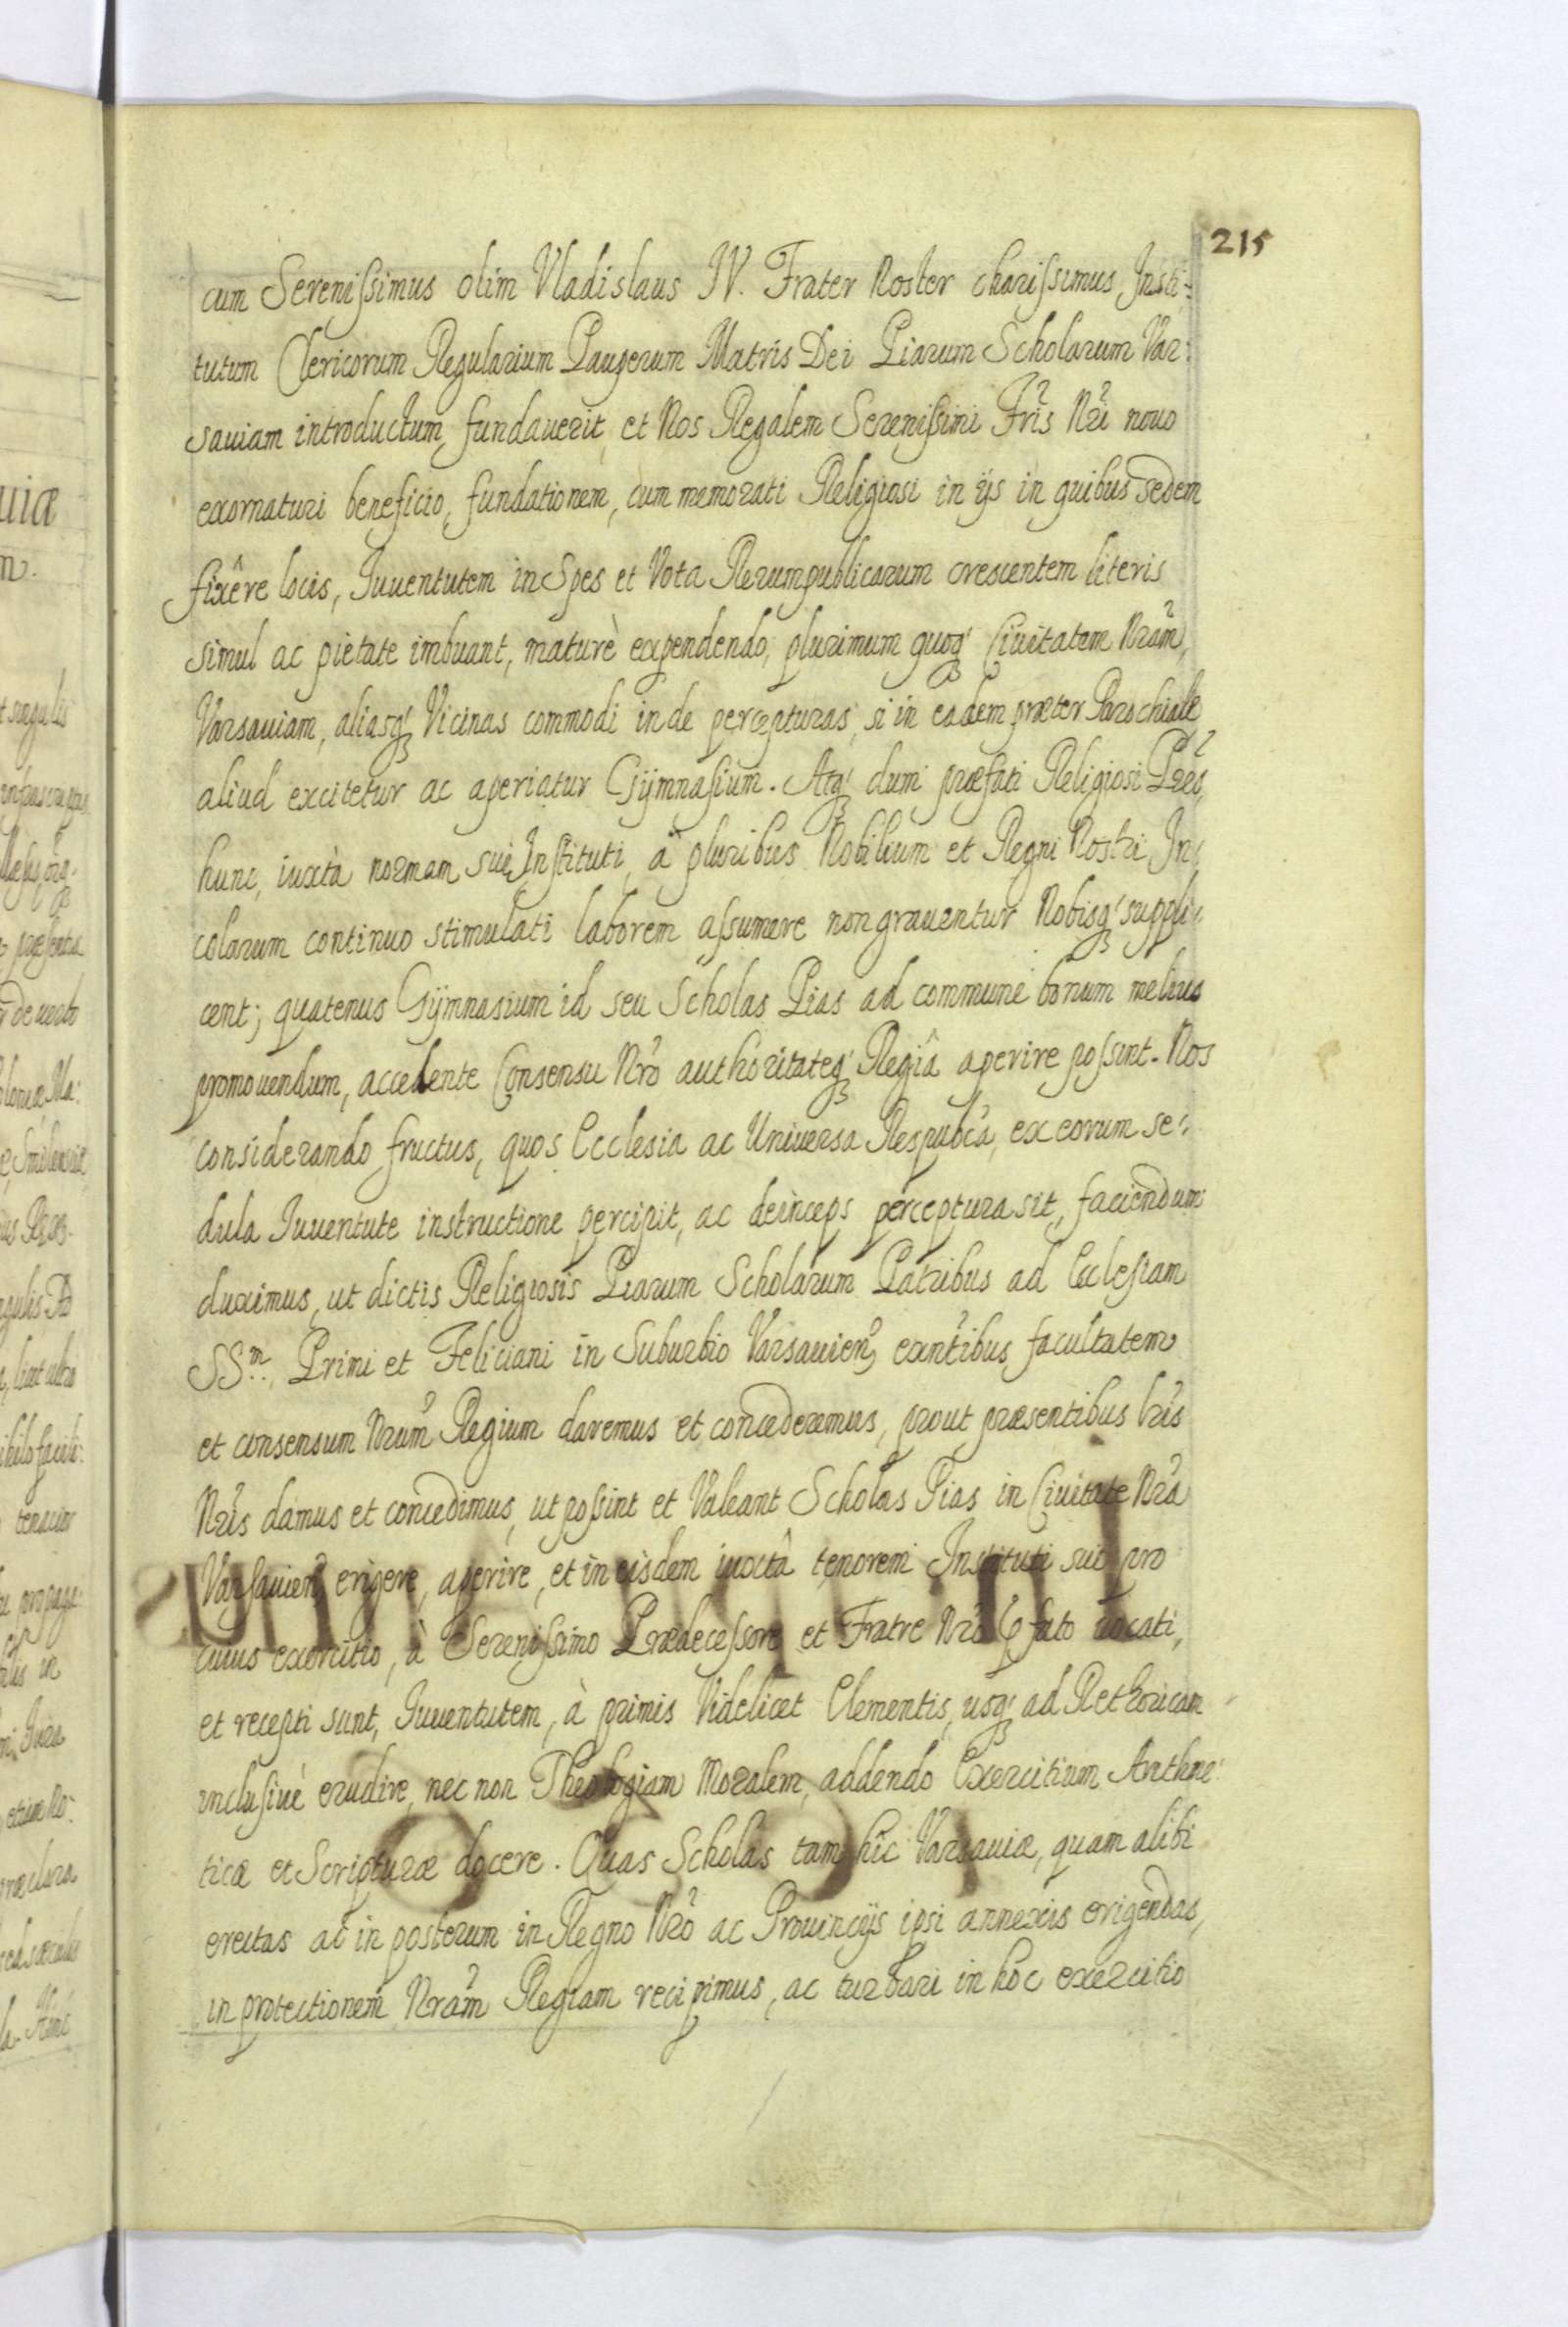 215
cum Serenissimus olim Vladislaus IV. Frater Noster charissimus, Insti-
tutum Clericorum Regularium Pauperum Matris Dei Piarum Scholarum Var:
sauiam introductum, fundauerit, et Nos Regalem Serenissimi Fris Nri nouo
exornaturi beneficio, fundationem, cum memorati Religiosi in ijs in quibus sedem
fixêre locis, Iuuentutem in Spes et Vota Rerumpublicarum crescentem literis
simul ac pietate imbuant, maturè expendendo, plurimum quoq; Ciuitatem Nram,
Varsauiam, aliasq; Vicinas commodi inde percepturas, si in eadem præter Parochiale
aliud excitetur ac aperiatur Gÿmnasium. Atq; dum præfati Religiosi Pres,
hunc, iuxtà normam sui Instituti, à pluribus Nobilium et Regni Nostri In-
colarum continuo stimulati laborem assumere non grauentur Nobisq; suppli-
cent; quatenus Gÿmnasium id seu Scholas Pias ad commune bonum melius
promouendum, accedente Consensu Nro authoritateq; Regiâ aperire possint. Nos
considerando fructus, quos Ecclesia ac Universa Respubca, ex eorum se-
dula Iuuentute instructione percipit, ac deinceps perceptura sit, faciendum
duximus, ut dictis Religiosis Piarum Scholarum Patribus ad Ecclesiam
SSm. Primi et Feliciani in Suburbio Varsauien, exntibus, facultatem
et consensum Nrum Regium daremus et concederemus, prout præsentibus lris
Nris damus et concedimus, ut possint et Valeant Scholas Pias in Ciuitate Nra
Varsauien, erigere, aperire, et in eisdem iuxtâ tenorem Instituti sui pro
cuius exercitio, à Serenissimo Prædecessore et Fratre Nro fato uocati,
et recepti sunt, Iuuentutem, à primis Videlicet Elementis, usq; ad Rethoricam
inclusiuè erudire, nec non Theologiam Moralem, addendo Exercitium Arithme:
ticæ et Scripturæ docere. Quas Scholas tam hîc Varsauiæ, quam alibi
erectas at in posterum in Regno Nro ac Prouincijs ipsi annexis erigendas,
in protectionem Nram Regiam recipimus, ac turbari in hoc exercitio